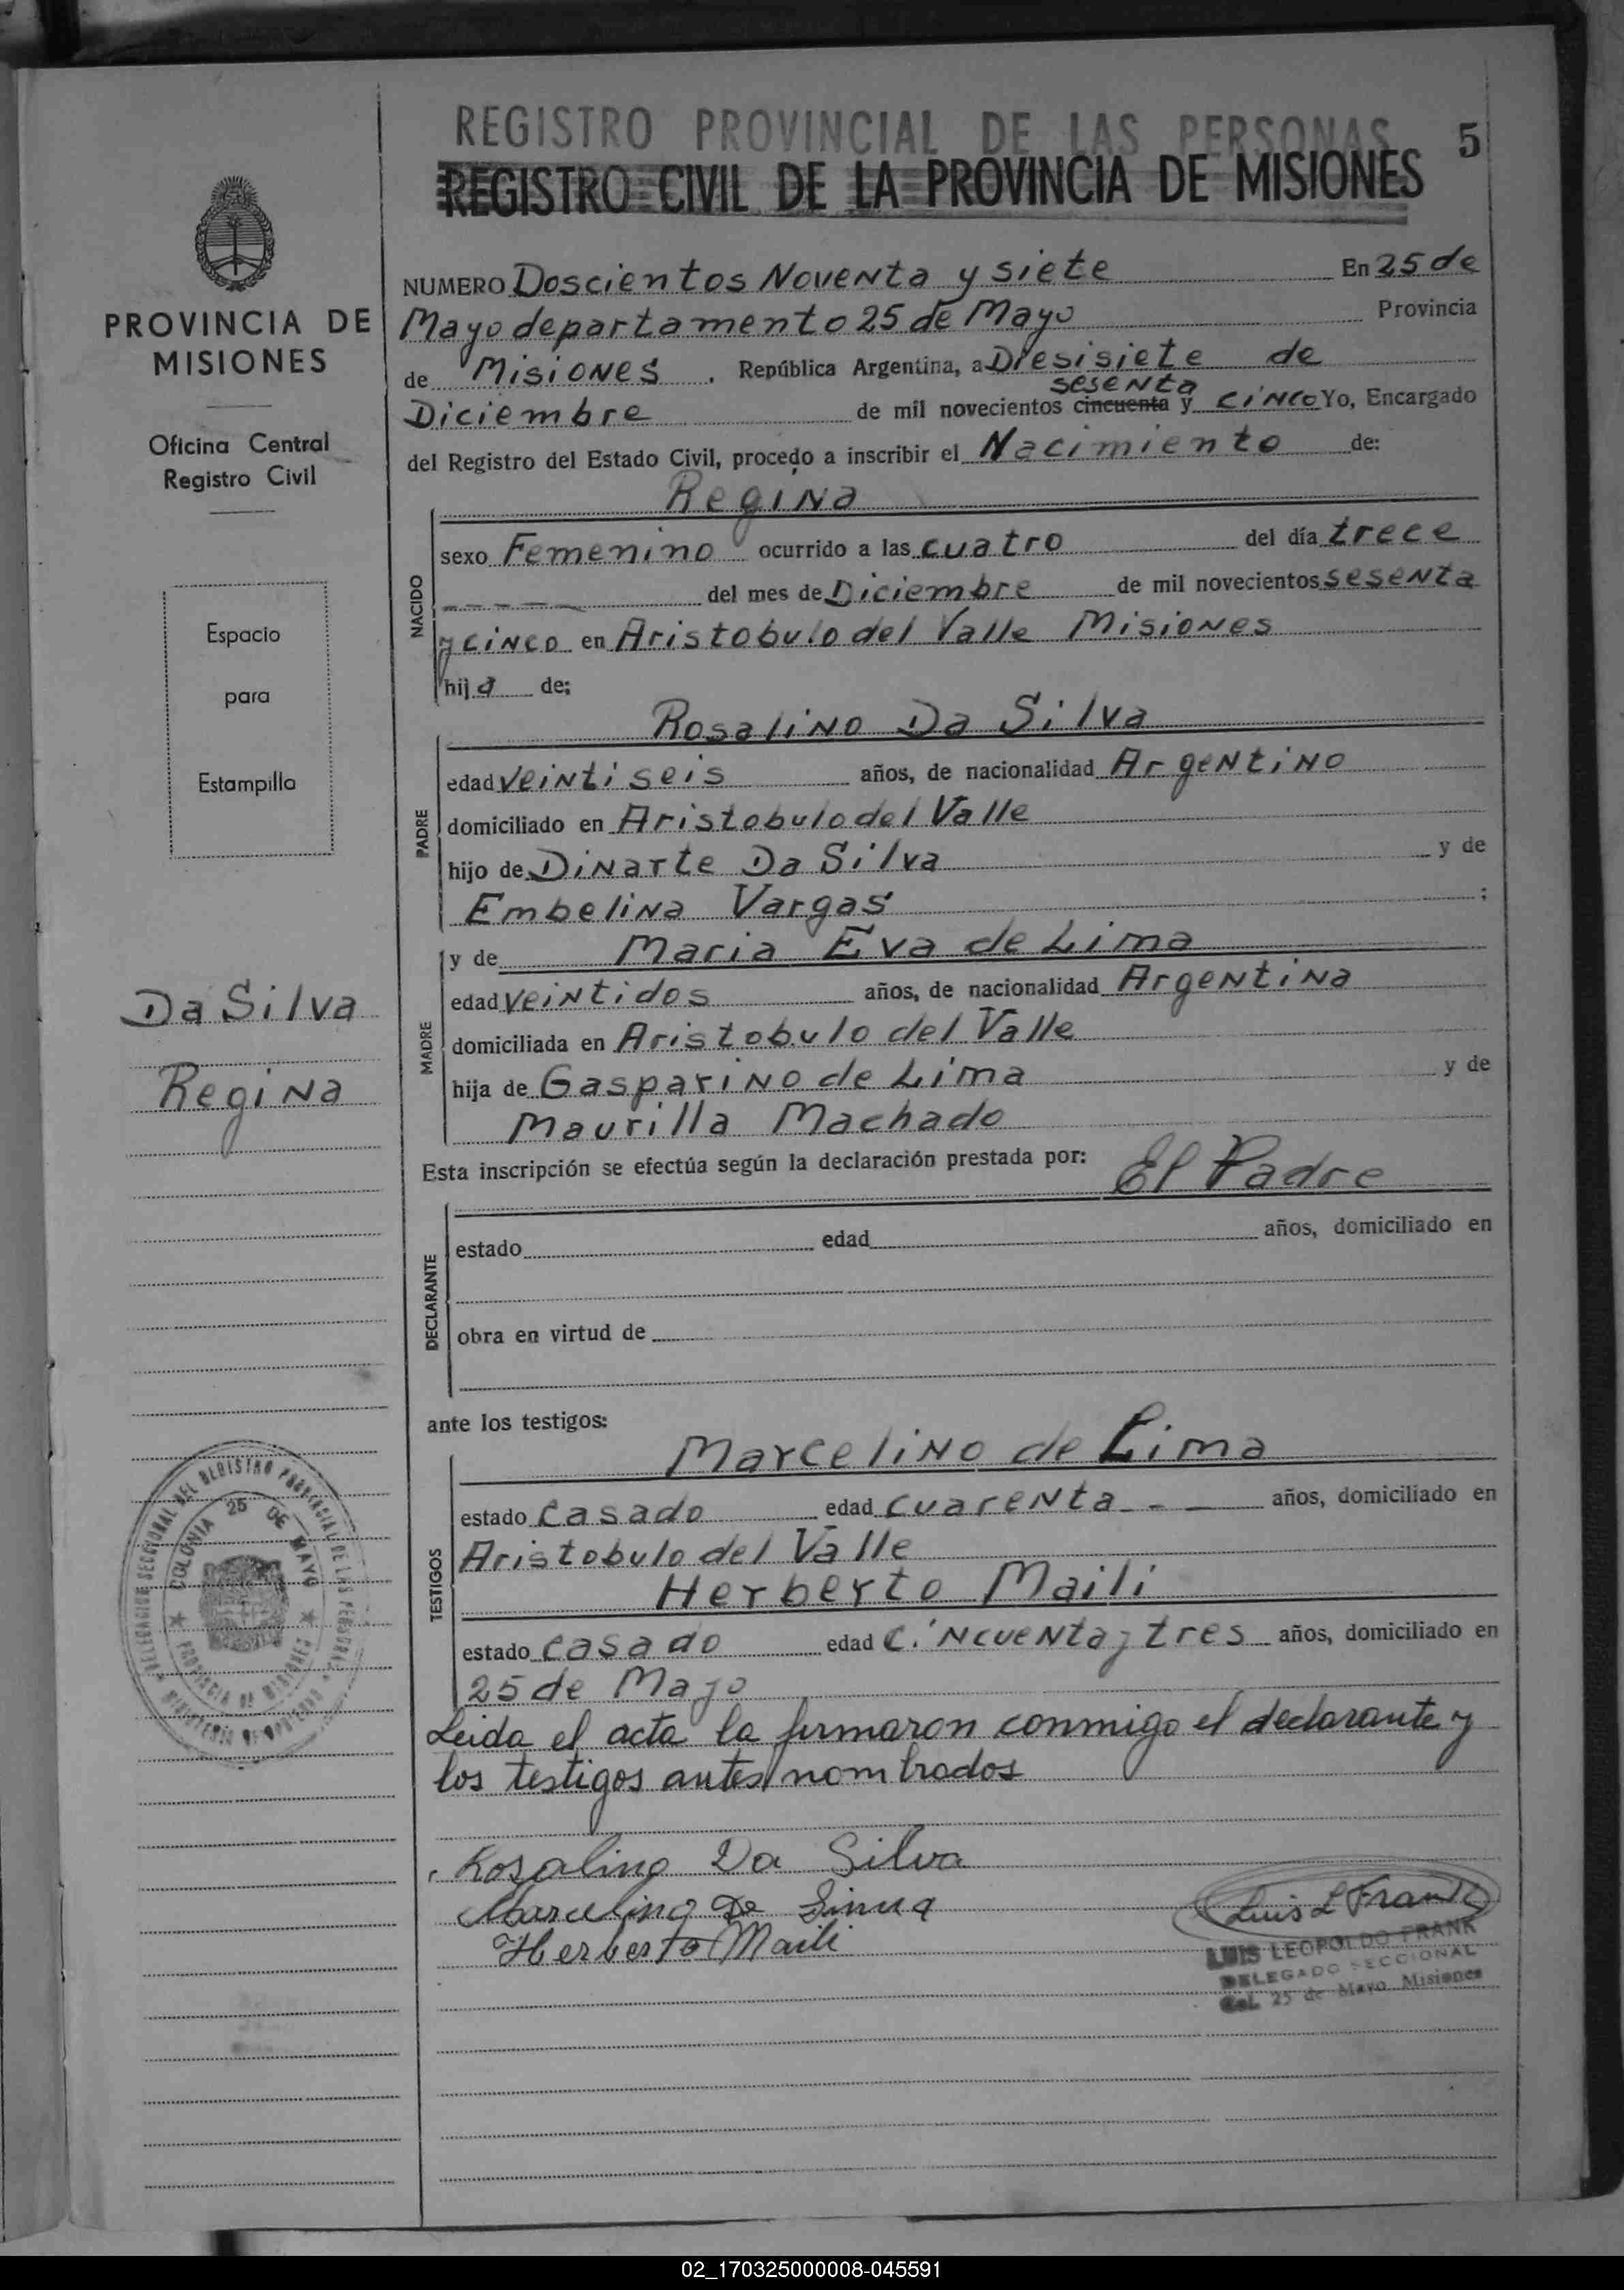 REGISTRO PROVINCIAL DE LAS PERSONAS
5
REGISTRO CIVIL DE LA PROVINCIA DE MISIONES
PROVINCIA DE
MISIONES
Oficina Central
Registro Civil
Espacio
para
Estampilla
Da Silva
Regina
DELEGACION SECCIONAL DEL REGISTRO PROVINCIAL DE LAS PERSONAS
COLONIA 25 DE MAYO
PROVINCIA DE MISIONES
NUMERO Doscientos Noventa y siete En 25 de
Mayo departamento 25 de Mayo Provincia
de Misiones, República Argentina, a Diesisiete de
sesenta
Diciembre de mil novecientos cincuenta y cinco Yo, Encargado
del Registro del Estado Civil, procedo a inscribir el Nacimiento de:
Regina
NACIDO
sexo Femenino ocurrido a las cuatro del día trece
_ _ _ _ _ del mes de Diciembre de mil novecientos sesenta
y cinco en Aristobulo del Valle Misiones
hija de:
Rosalino Da Silva
PADRE
edad veintiseis años, de nacionalidad Argentino
domiciliado en Aristobulo del Valle
hijo de Dinarte Da Silva y de
Embelina Vargas ;
y de Maria Eva de Lima
MADRE
edad veintidos años, de nacionalidad Argentina
domiciliada en Aristobulo del Valle
hija de Gasparino de Lima y de
Maurilla Machado
Esta inscripción se efectúa según la declaración prestada por: El Padre
DECLARANTE
estado edad años, domiciliado en
obra en virtud de
ante los testigos:
Marcelino de Lima
TESTIGOS
estado casado edad cuarenta - - años, domiciliado en
Aristobulo del Valle
Herberto Maili
estado casado edad cincuenta y tres años, domiciliado en
25 de Mayo
Leida el acta la firmaron conmigo el declarante y
los testigos antes nombrados
Rosalino Da Silva
Marcelino De Lima
Herberto Maili
Luis L Frank
LUIS LEOPOLDO FRANK
DELEGADO SECCIONAL
Col. 25 de Mayo Misiones
02_170325000008-045591